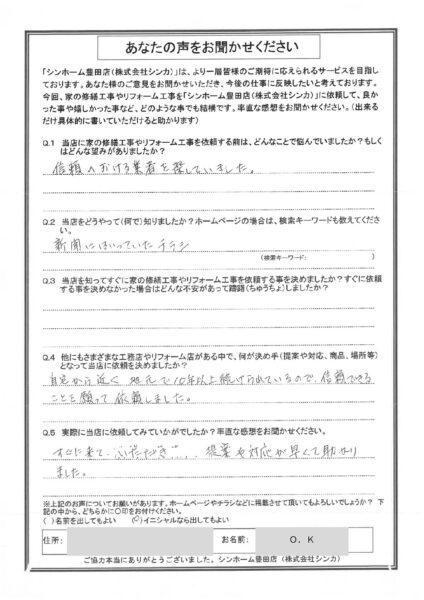 あなたの声をお聞かせください
「シンホーム豊田店(株式会社シンカ)」は、より一層皆様のご期待に応えられるサービスを目指し
ております。あなた様のご意見をお聞かせいただき、今後の仕事に反映したいと考えております。
今回、家の修繕工事やリフォーム工事を「シンホーム豊田店(株式会社シンカ)」に依頼して、良か
った事や嬉しかった事など、どのような事でも結構です。率直な感想をお聞かせください。(出来る
だけ具体的に書いていただけると助かります)
Q.1 当店に家の修繕工事やリフォーム工事を依頼する前は、どんなことで悩んでいましたか?もしく
はどんな望みがありましたか?
信頼のおける業者を探していました。
Q.2 当店をどうやって(何で)知りましたか?ホームページの場合は、検索キーワードも教えてくださ
い。
新聞にはいっていたチラシ
(検索キーワード: )
Q.3 当店を知ってすぐに家の修繕工事やリフォーム工事を依頼する事を決めましたか?すぐに依頼
する事を決めなかった場合はどんな不安があって躊躇(ちゅうちょ)しましたか?
Q.4 他にもさまざまな工務店やリフォーム店がある中で、何が決め手(提案や対応、商品、場所等)
となって当店に依頼を決めましたか?
自宅から近く 地元で10年以上続けられているので、信頼できる
ことを願って依頼しました。
Q.5 実際に当店に依頼してみていかがでしたか?率直な感想をお聞かせください。
すぐに来て、いただき、提案や対応が早くて助かり
ました。
※上記のお声についてお願いがあります。ホームページやチラシなどに掲載させて頂いてもよろしいでしょうか? 下
記の中から、どちらかに〇印をお付けください。
( )名前を出してもよい (〇)イニシャルなら出してもよい
住所: お名前: O.K
ご協力本当にありがとうございました。シンホーム豊田店 (株式会社シンカ)